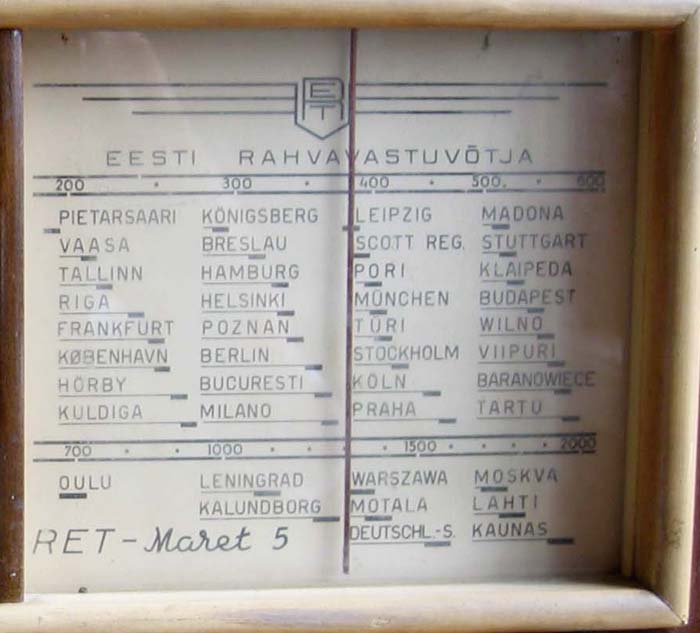 ERT
EESTI RAHVAVASTUVÕTJA
200 300 400 500 600
PIETARSAARI KÖNIGSBERG LEIPZIG MADONA
VAASA BRESLAU SCOTT REG. STUTTGART
TALLINN HAMBURG PORI KLAIPEDA
RIGA HELSINKI MÜNCHEN BUDAPEST
FRANKFURT POZNAN TÜRI WILNO
KØBENHAVN BERLIN STOCKHOLM VIIPURI
HÖRBY BUCURESTI KÖLN BARANOWIECE
KULDIGA MILANO PRAHA TARTU
700 1000 1500 2000
OULU LENINGRAD WARSZAWA MOSKVA
KALUNDBORG MOTALA LAHTI
DEUTSCHL.-S. KAUNAS
RET-Maret 5